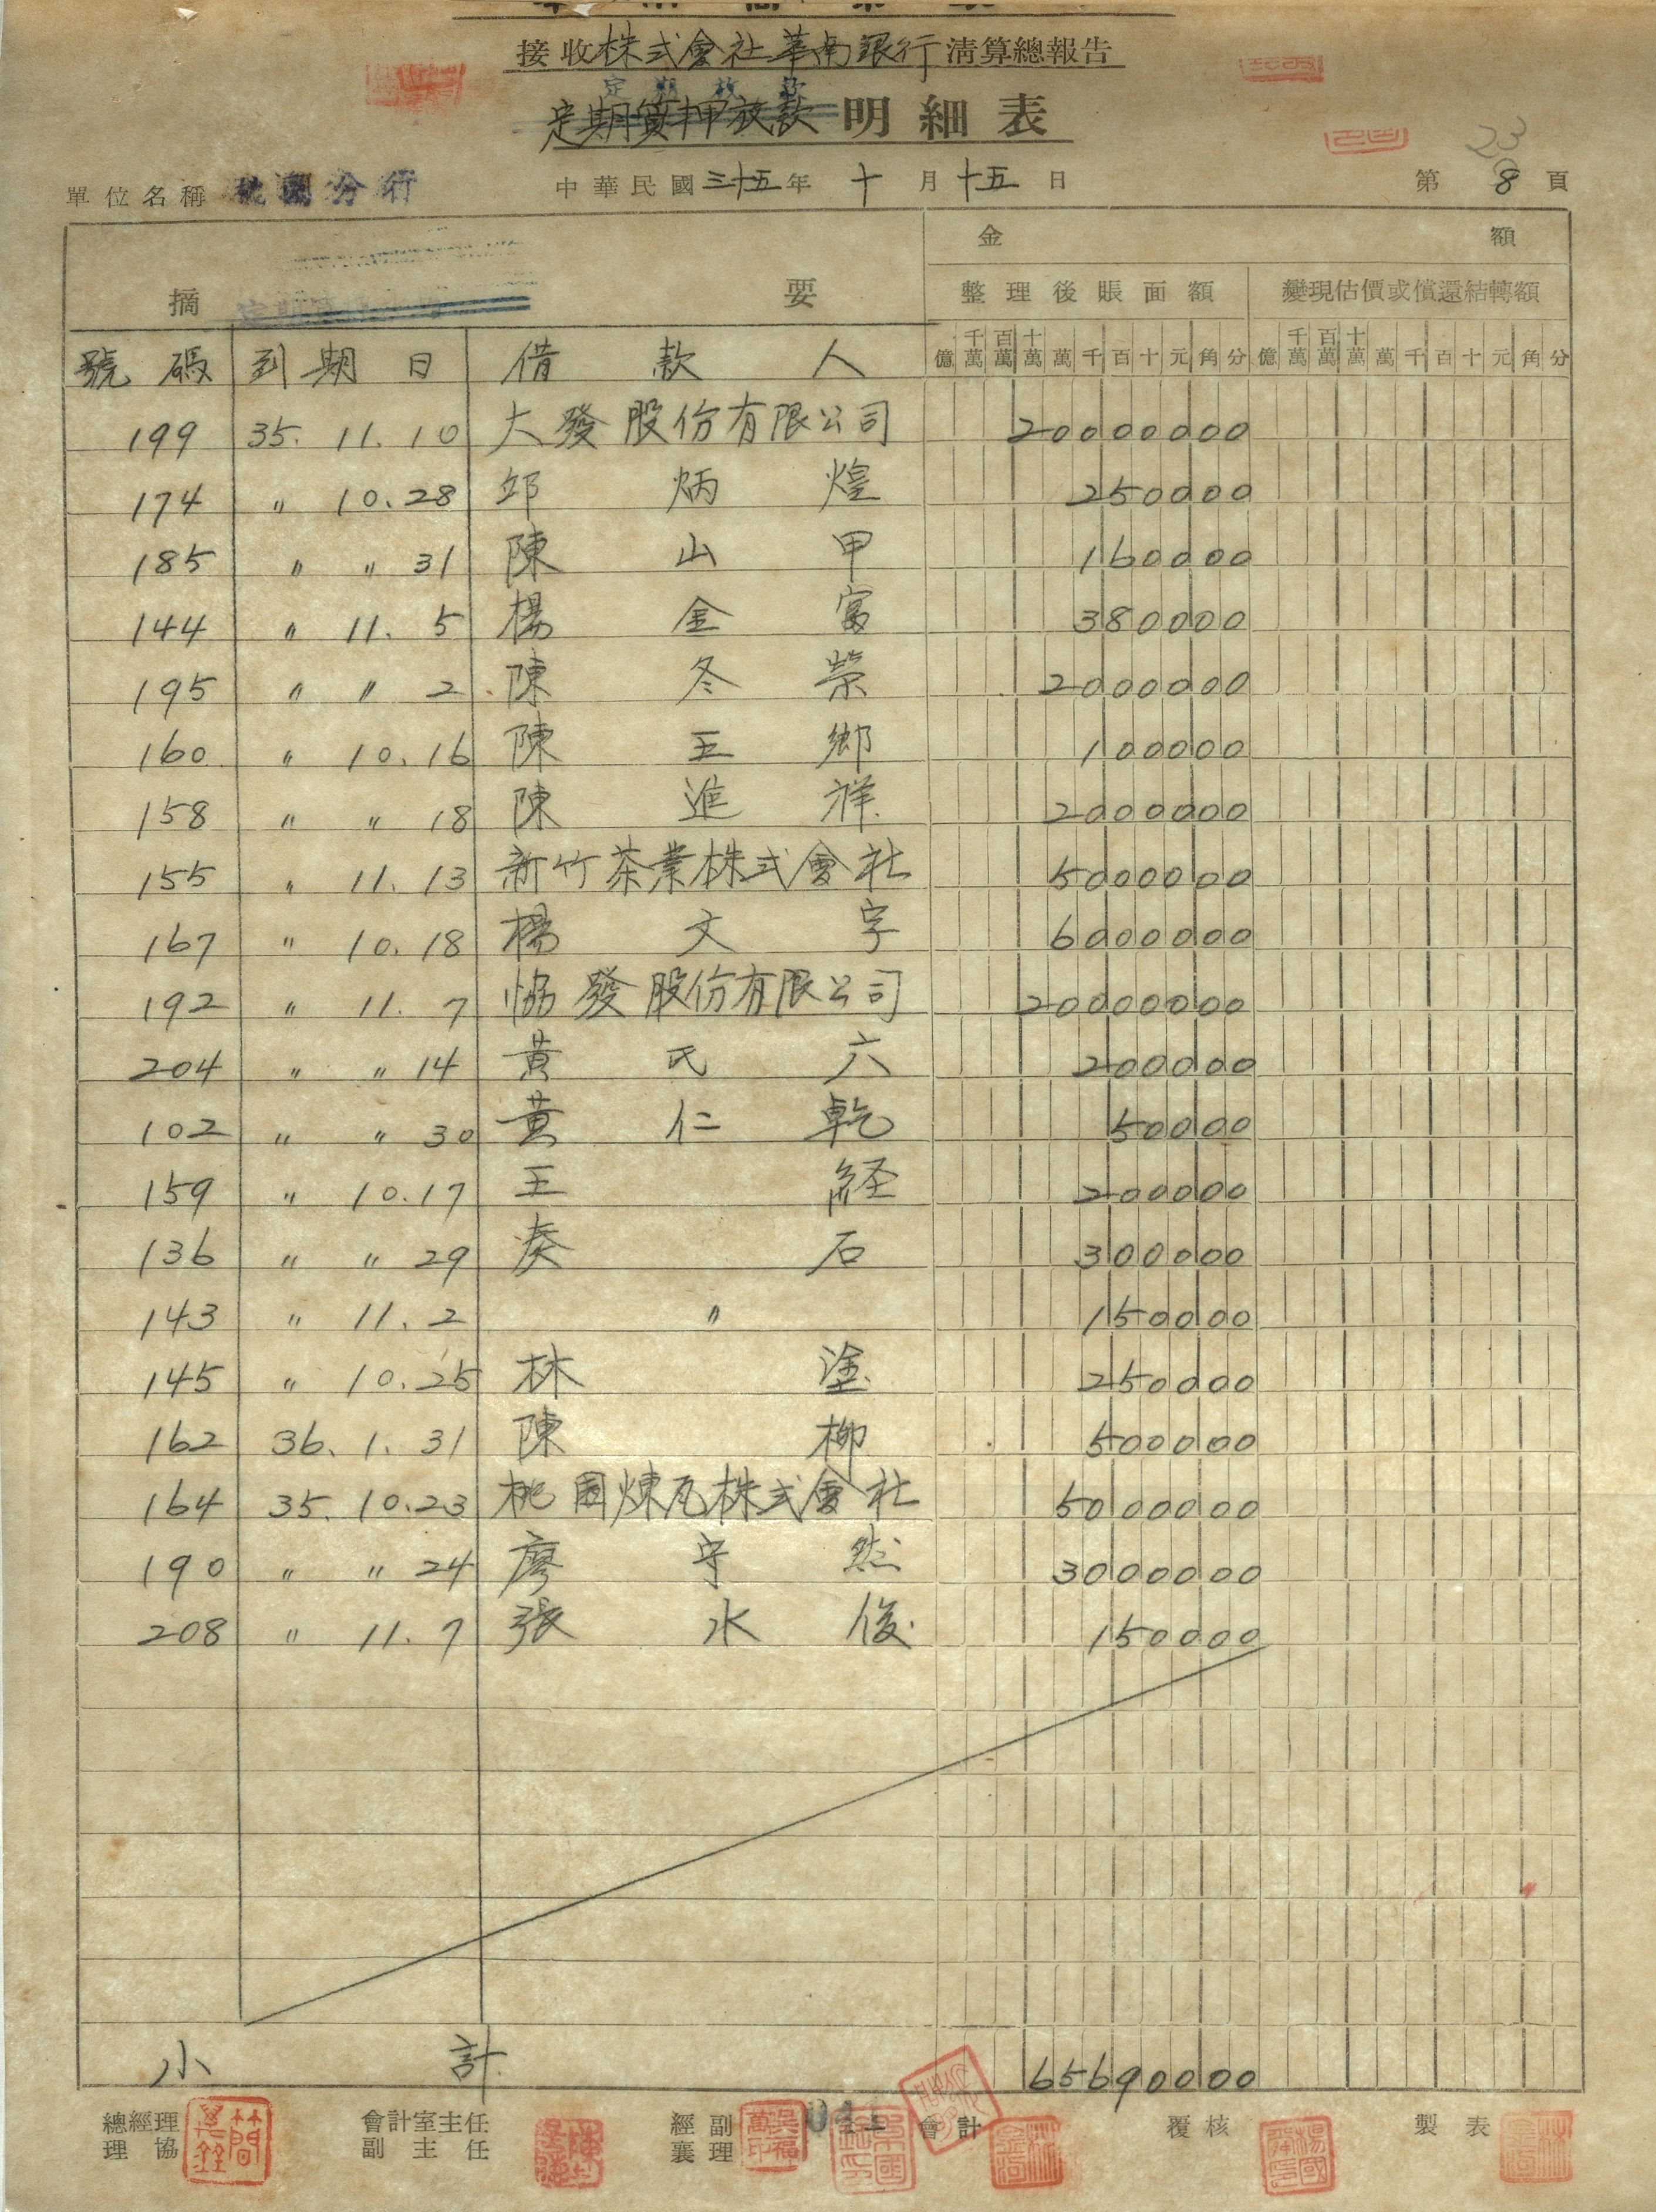 接收株式會社華南銀行清算總報告
定期放款
定期質押放款明細表
23
單位名稱 桃園分行 中華民國三十五年十月十五日 第8頁
金額
摘要 整理後賬面額 變現估價或償還結轉額
號碼 到期日 借款人 億 千萬 百萬 十萬 萬 千 百 十 元 角 分 億 千萬 百萬 十萬 萬 千 百 十 元 角 分
199 35. 11. 10 大發股份有限公司 20000000
174 〃 10.28 邱炳煌 250000
185 〃 〃 31 陳山甲 160000
144 〃 11. 5 楊金富 380000
195 〃 〃 2 陳冬榮 2000000
160 〃 10.16 陳玉鄉 100000
158 〃 〃 18 陳進祥 2000000
155 〃 11.13 新竹茶業株式會社 5000000
167 〃 10.18 楊文字 6000000
192 〃 11. 7 協發股份有限公司 20000000
204 〃 〃 14 黃氏六 200000
102 〃 〃 30 黃仁乾 50000
159 〃 10.17 王経 200000
136 〃 〃 29 奏石 300000
143 〃 11. 2 〃 150000
145 〃 10.25 林塗 250000
162 36. 1. 31 陳柳 500000
164 35. 10.23 桃園煉瓦株式會社 5000000
190 〃 〃 24 廖守然 3000000
208 〃 11. 7 張水俊 150000
小計 65690000
總經理 會計室主任 經副 會計 覆核 製表
理協 副主任 襄理